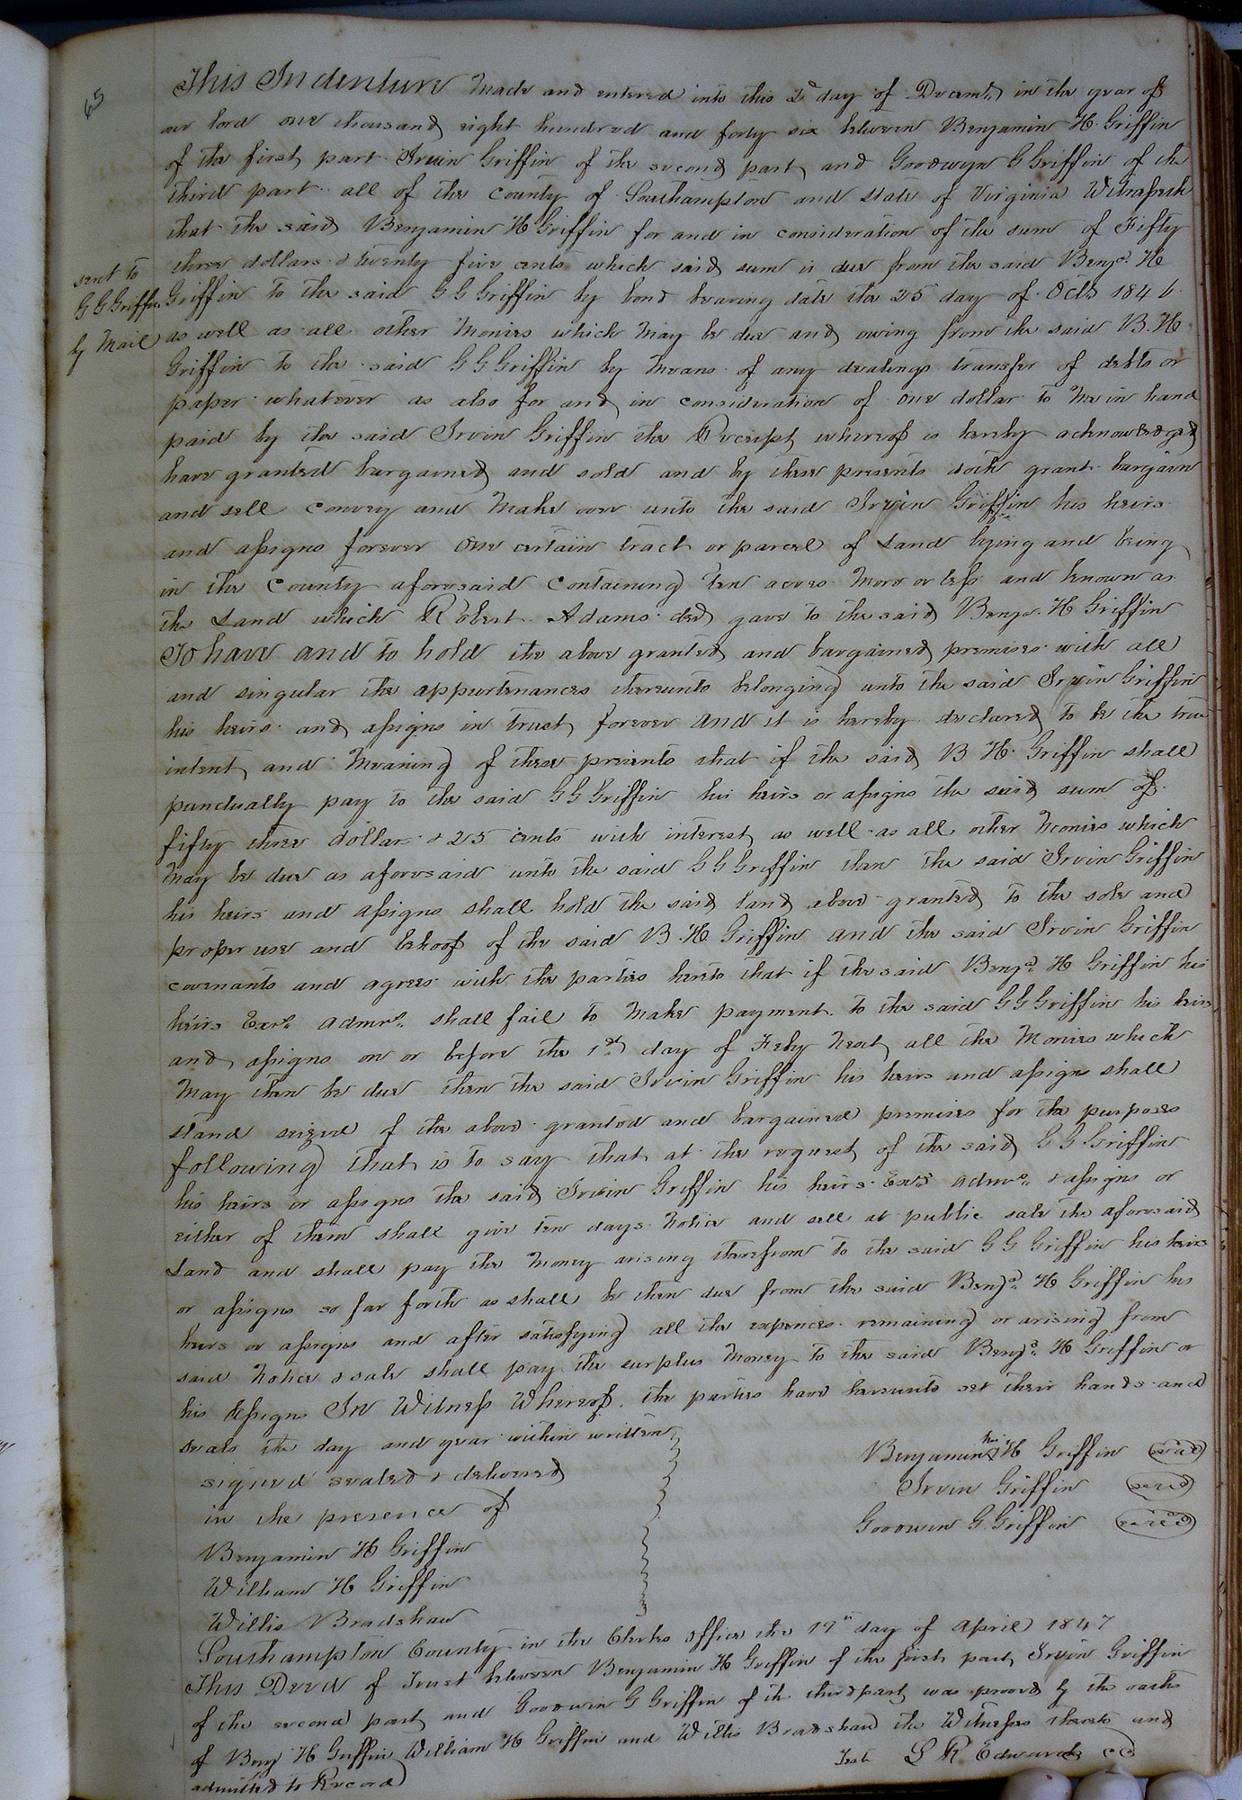 65
This Indenture Made and entered into this 2d day of Decemb. in the year of
our lord one thousand eight hundred and forty six between Benjamin H. Griffin
of the first part Irvin Griffin of the second part and Goodwyn G Griffin of the
third part all of the County of Southampton and State of Virginia Witnesseth
that the said Benjamin H Griffin for and in consideration of the sum of Fifty
three dollars & twenty five cents which said sum is due from the said Benja. H
Griffin to the said G G Griffin by bond bearing date the 25 day of Octb 1846
as well as all other Monies which May be due and owing from the said B. H
Griffin to the said G G Griffin by Means of any dealings transfer of debts or
paper whatever as also for and in consideration of one dollar to me in hand
paid by the said Irvin Griffin the Receipt whereof is hereby acknowledged
have granted bargained and sold and by these presents doth grant bargain
and sell convey and Make over unto the said Irvin Griffin his heirs
and assigns forever One certain tract or parcel of Land lying and being
in the County aforesaid Containing ten acres More or less and known as
the Land which Robert Adams decd gave to the said Benja. H Griffin
To have and to hold the above granted and bargained premises with all
and singular the appurtenances thereunto belonging unto the said Irvin Griffin
his heirs and assigns in trust forever and it is hereby declared to be the true
intent and Meaning of these presents that if the said B H. Griffin shall
punctually pay to the said G G Griffin his heirs or assigns the said sum of
fifty three dollar & 25 cents with interest as well as all other Monies which
May be due as aforesaid unto the said G G Griffin than the said Irvin Griffin
his heirs and assigns shall hold the said land above granted to the sole and
proper use and behoof of the said B. H. Griffin and the said Irvin Griffin
covenants and agrees with the parties hereto that if the said Benja. H Griffin his
heirs Exrs. admrs. shall fail to Make payment to the said G G Griffin his heirs
and assigns on or before the 1st day of Feby Next all the Monies which
May then be due then the said Irvin Griffin his heirs and assigns shall
stand seized of the above granted and bargained premises for the purposes
following that is to say that at the request of the said G G Griffin
his heirs or assigns the said Irvin Griffin his heirs Exrs admrs. & assigns or
either of them shall give ten days Notice and sell at public sale the aforesaid
Land and shall pay the Money arising therefrom to the said G G Griffin his heirs
or assigns so far forth as shall be then due from the said Benja. H Griffin his
heirs or assigns and after satisfying all the expences remaining or arising from
said Notice & sale shall pay the surplus Money to the said Benja. H Griffin or
his Assigns In Witness Whereof the parties have hereunto set their hands and
seals the day and year within written
sent to
G G Griffin
by Mail
signed sealed & delivered
in the presence of
Benjamin H Griffin
William H Griffin
Willis Bradshaw
Benjamin his X H Griffin seal
Irvin Griffin seal
Goodwin G. Griffin seal
Southampton County in the Clerks office the 19th day of April 1847
This Deed of Trust between Benjamin H Griffin of the first part Irvin Griffin
of the second part and Goodwin G Griffin of the third part was proved by the oaths
of Benj H Griffin William H Griffin and Willis Bradshaw the Witnesses thereto and
admitted to Record
Test L R Edwards CC